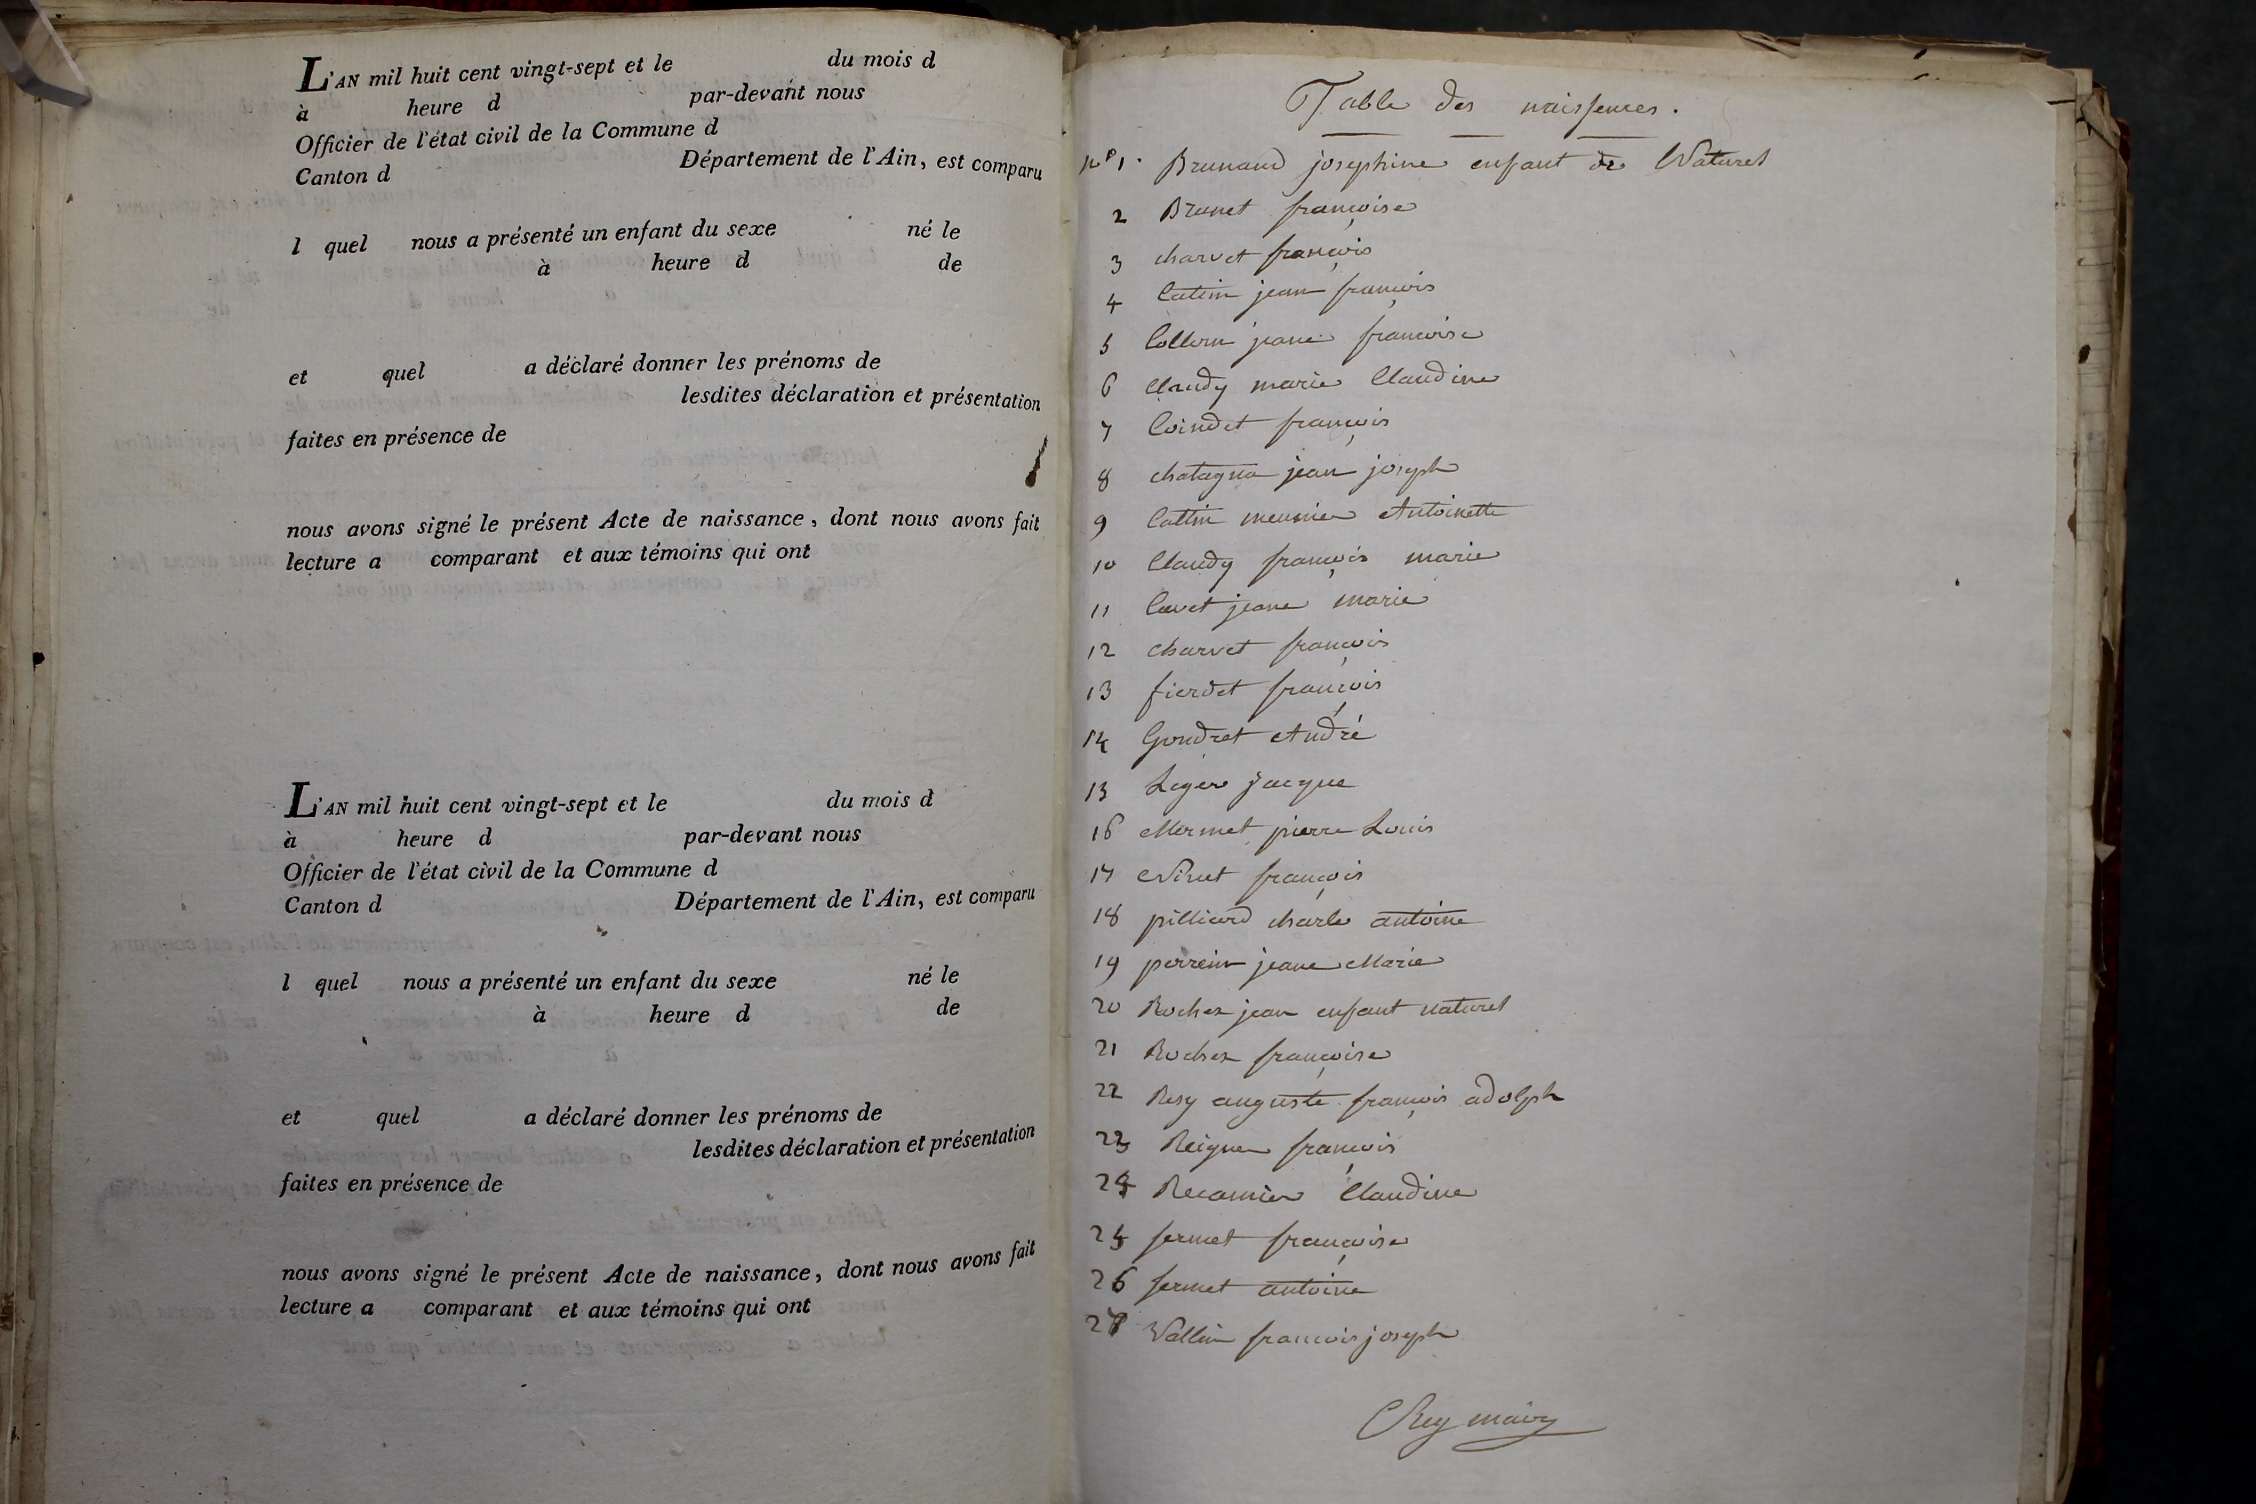 L'AN mil huit cent vingt-sept et le du mois d
à heure d par-devant nous
Officier de l'état civil de la Commune d
Canton d Département de l'Ain, est comparu
l quel nous a présenté un enfant du sexe né le
à heure d de
et quel a déclaré donner les prénoms de
lesdites déclaration et présentation
faites en présence de
nous avons signé le présent Acte de naissance, dont nous avons fait
lecture a comparant et aux témoins qui ont
L'AN mil huit cent vingt-sept et le du mois d
à heure d par-devant nous
Officier de l'état civil de la Commune d
Canton d Département de l'Ain, est comparu
l quel nous a présenté un enfant du sexe né le
à heure d de
et quel a déclaré donner les prénoms de
lesdites déclaration et présentation
faites en présence de
nous avons signé le présent Acte de naissance, dont nous avons fait
lecture a comparant et aux témoins qui ont
Table des naissences.
n° 1. Brunand josephine enfant de Naturel
2 Brunet françoise
3 charvet françois
4 Cattin jean françois
5 jeane francoise
6 Claudy marie Claudine
7 Coindet françois
8 chatagna jean joseph
9 Cattin meunier Antoinette
10 Claudy françois marie
11 Cavet jeane marie
12 charvet françois
13 fierdet françois
14 Gondret André
15 Leger Jacque
16 Mermet pierre Louis
17 Ninet françois
18 pilliard charle antoine
19 perrein jeane Marie
20 Rochex jean enfant naturel
21 Rochex françoise
22 Rey auguste françois adolph
23 françois
24 Recamier Claudine
25 sermet françoise
26 sermet antoine
27 Vallin francois joseph
Rey maire